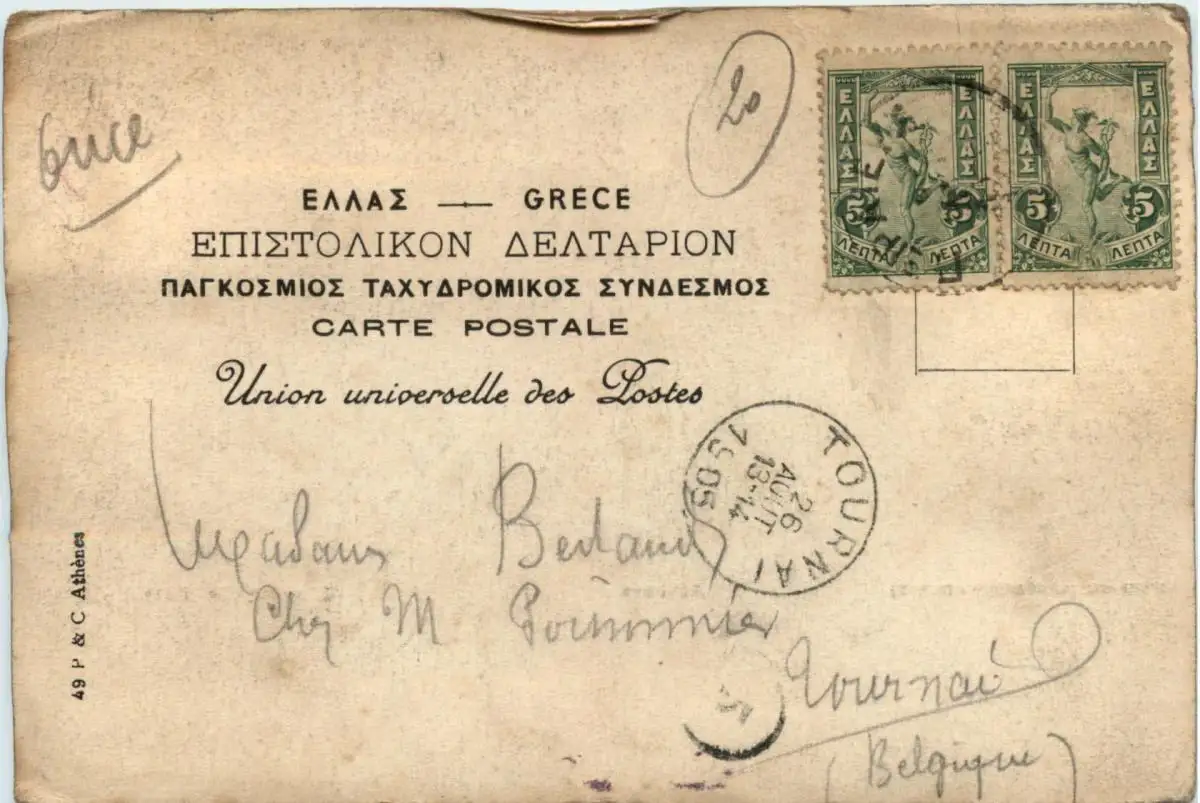 20
ΕΛΛΑΣ — GRÈCE
ΕΠΙΣΤΟΛΙΚΟΝ ΔΕΛΤΑΡΙΟΝ
ΠΑΓΚΟΣΜΙΟΣ ΤΑΧΥΔΡΟΜΙΚΟΣ ΣΥΝΔΕΣΜΟΣ
CARTE POSTALE
Union universelle des Postes
ΕΛΛΑΣ ΕΛΛΑΣ
5 5
ΛΕΠΤΑ ΛΕΠΤΑ
ΕΛΛΑΣ ΕΛΛΑΣ
5 5
ΛΕΠΤΑ ΛΕΠΤΑ
TOURNAI
26
AOUT
13-14
1905
Madame
Chez M
Tournai
(Belgique)
49 P & C Athènes